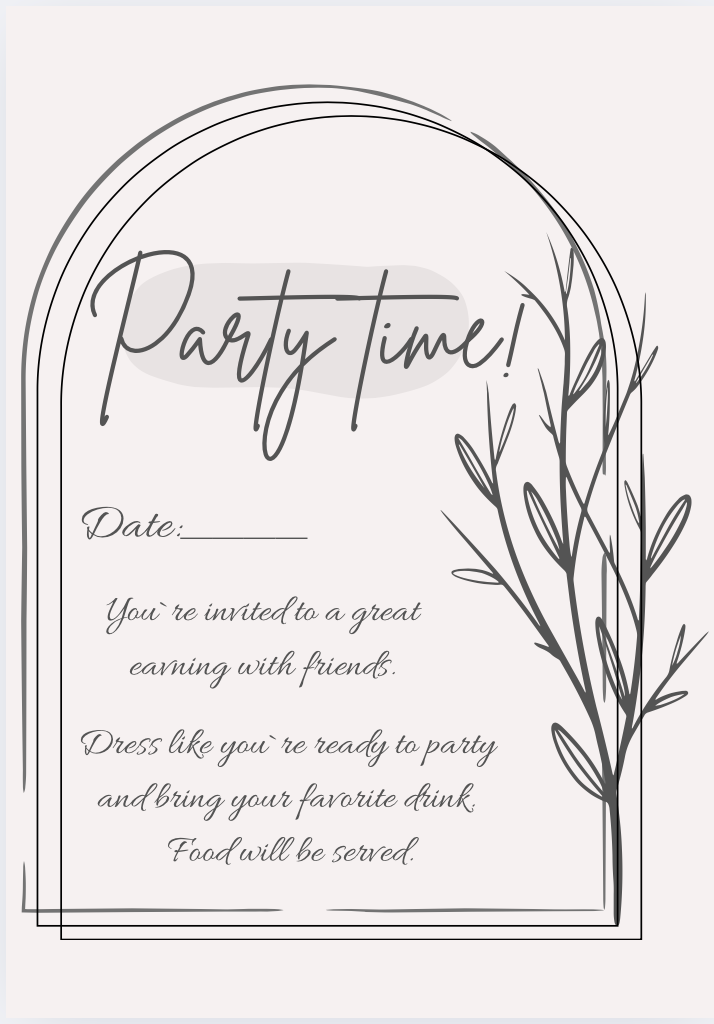 Party time!
Date:_________
You`re invited to a great
eavning with friends.
Dress like you`re ready to party
and bring your favorite drink.
Food will be served.